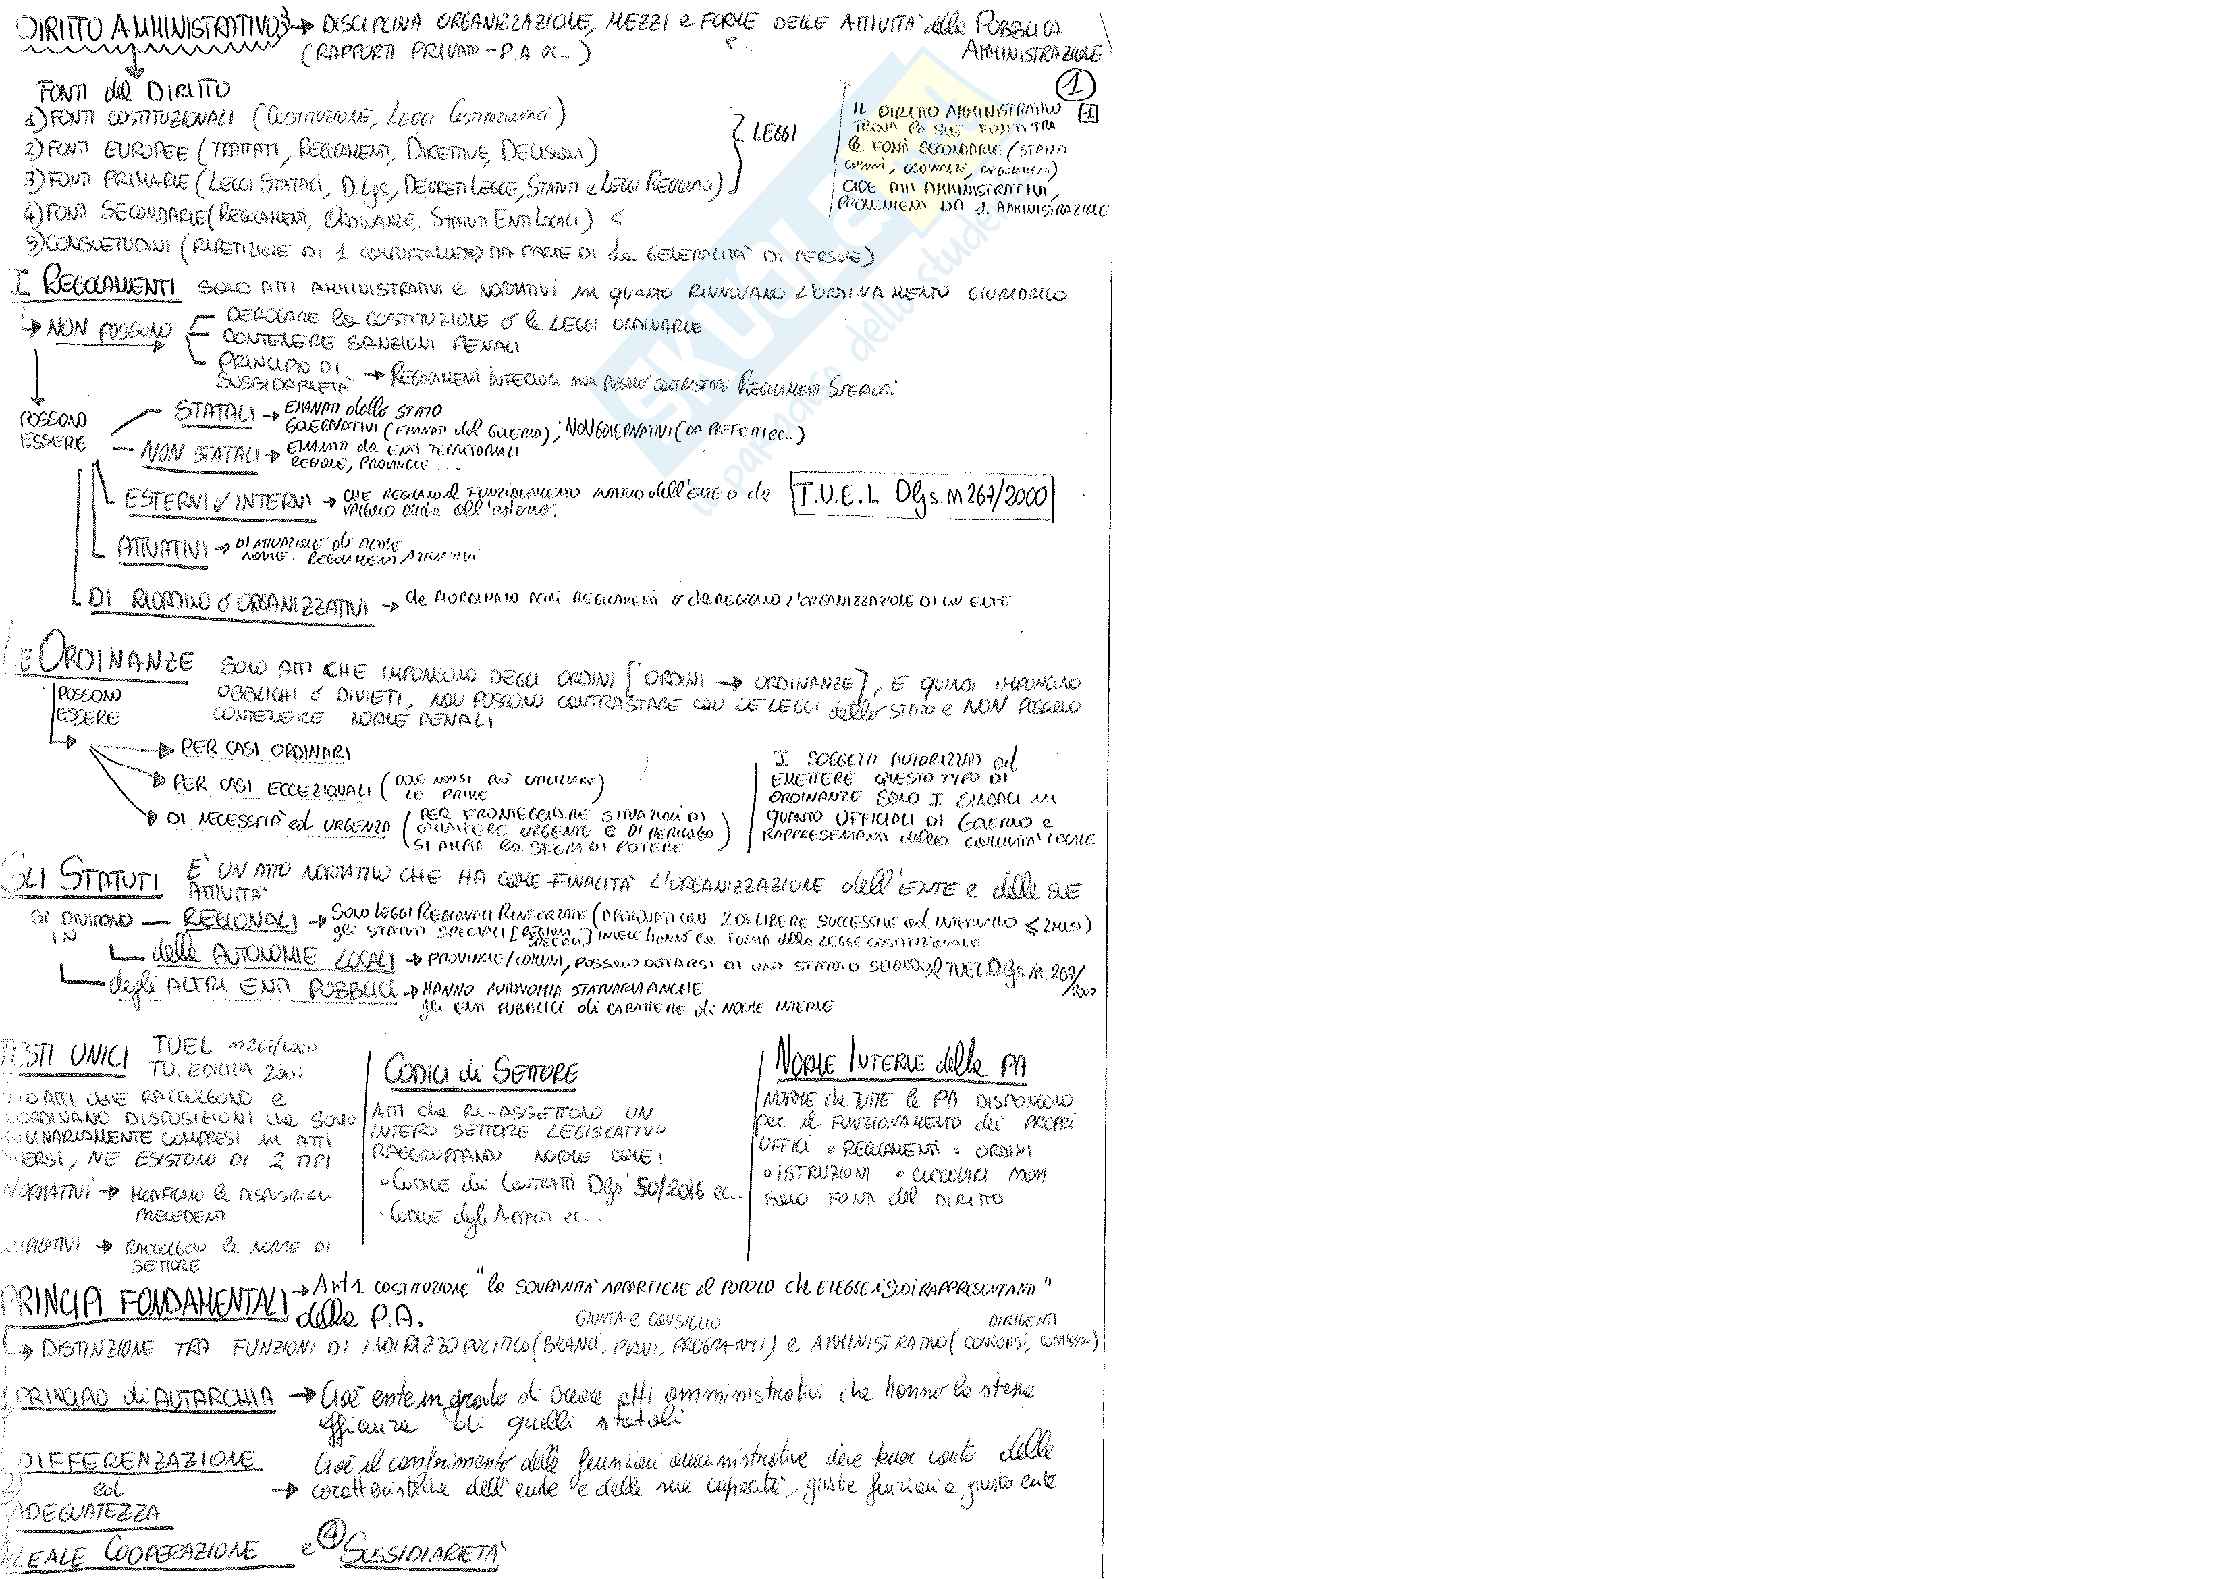 DIRITTO AMMINISTRATIVO → DISCIPLINA ORGANIZZAZIONE, MEZZI e FORME DELLE ATTIVITÀ della PUBBLICA AMMINISTRAZIONE
(RAPPORTI PRIVATO-P.A ec..)
1
FONTI del DIRITTO
1) FONTI COSTITUZIONALI (COSTITUZIONE, LEGGI COSTITUZIONALI)
2) FONTI EUROPEE (TRATTATI, REGOLAMENTI, DIRETTIVE, DECISIONI)
3) FONTI PRIMARIE (LEGGI STATALI, D.Lgs, DECRETI LEGGE, STATUTI e LEGGI REGIONALI)
} LEGGI
4) FONTI SECONDARIE (REGOLAMENTI, ORDINANZE, STATUTI ENTI LOCALI) <
5) CONSUETUDINI (RIPETIZIONE DI 1 COMPORTAMENTO DA PARTE DI GENERALITÀ DI PERSONE)
IL DIRITTO AMMINISTRATIVO 1
TROVA LE SUE FONTI TRA
LE FONTI SECONDARIE (STATUTI
COMUNI, ORDINANZE, REGOLAMENTI)
CIOÈ ATTI AMMINISTRATIVI,
PROVENIENTI DA 1 AMMINISTRAZIONE
I REGOLAMENTI SONO ATTI AMMINISTRATIVI e NORMATIVI in quanto RINNOVANO L'ORDINAMENTO GIURIDICO
→ NON POSSONO
DEROGARE la COSTITUZIONE o le LEGGI ORDINARIE
CONTENERE SANZIONI PENALI
PRINCIPIO DI SUSSIDARIETÀ → REGOLAMENTI INFERIORI non POSSONO CONTRASTARE REGOLAMENTI SUPERIORI
POSSONO ESSERE
STATALI → EMANATI dallo STATO
GOVERNATIVI (EMANATI dal GOVERNO); NON GOVERNATIVI (DA PREFETTI ec..)
NON STATALI → EMANATI da ENTI TERRITORIALI
REGIONE, PROVINCIE ...
ESTERNI o INTERNI → CHE REGOLANO il FUNZIONAMENTO INTERNO dell'ENTE o che
VALGONO anche all'esterno.
T.U.E.L Dlgs. n 267/2000
ATTUATIVI → DI ATTUAZIONE di ALCUNE
NORME. REGOLAMENTI ATTUATIVI
DI RIORDINO o ORGANIZZATIVI → che RIORDINANO ALTRI REGOLAMENTI o che REGOLANO L'ORGANIZZAZIONE DI UN ENTE
Le ORDINANZE SONO ATTI CHE IMPONGONO DEGLI ORDINI [ORDINI → ORDINANZE], E QUINDI IMPONGONO
OBBLIGHI O DIVIETI, NON POSSONO CONTRASTARE CON LE LEGGI dello STATO e NON POSSONO
CONTENERE NORME PENALI
POSSONO ESSERE
→ PER CASI ORDINARI
→ PER CASI ECCEZIONALI (DOVE NON SI PUÒ UTILIZZARE LE PRIME)
→ DI NECESSITÀ ed URGENZA (PER FRONTEGGIARE SITUAZIONI DI
CARATTERE URGENTE E DI PERICOLO
SI AMPLIA la SFERA DI POTERE)
I SOGGETTI AUTORIZZATI ad
EMETTERE QUESTO TIPO DI
ORDINANZE SONO I SINDACI in
QUANTO UFFICIALI DI GOVERNO e
RAPPRESENTANTI della COMUNITÀ LOCALE
GLI STATUTI È UN ATTO NORMATIVO CHE HA COME FINALITÀ L'ORGANIZZAZIONE dell'ENTE e delle SUE
ATTIVITÀ
SI DIVIDONO IN
REGIONALI → SONO LEGGI REGIONALI RINFORZATE (APPROVATI CON 2 DELIBERE SUCCESSIVE ad INTERVALLO ≤ 2 MESI)
gli STATUTI SPECIALI [REGIONI SPECIALI] INVECE HANNO LA FORMA della LEGGE COSTITUZIONALE
delle AUTONOMIE LOCALI → PROVINCIE/COMUNI, POSSONO DOTARSI DI UNO STATUTO SECONDO il TUEL Dlgs n. 267/2000
degli ALTRI ENTI PUBBLICI → HANNO AUTONOMIA STATUTARIA ANCHE
gli ENTI PUBBLICI di CARATTERE di NORME INTERNE
TESTI UNICI TUEL n 267/2000
TU. EDILIZIA 2001
SONO ATTI CHE RACCOLGONO E
COORDINANO DISPOSIZIONI che SONO
ORDINARIAMENTE COMPRESI in ATTI
DIVERSI, NE ESISTONO DI 2 TIPI
NORMATIVI → MODIFICANO le DISPOSIZIONI
PRECEDENTI
→ RACCOLGONO le NORME DI
SETTORE
CODICI di SETTORE
ATTI che RI-ASSETTANO UN
INTERO SETTORE LEGISLATIVO
RAGGRUPPANDO NORME COME:
- CODICE dei CONTRATTI Dlgs 50/2016 ec..
- CODICE degli APPALTI ec...
NORME INTERNE della PA
NORME che TUTTE le PA DISPONGONO
per il FUNZIONAMENTO dei PROPRI
UFFICI • REGOLAMENTI • ORDINI
• ISTRUZIONI • CIRCOLARI NON
SONO FONTI del DIRITTO
PRINCIPI FONDAMENTALI della P.A. → Art 1 COSTITUZIONE "la SOVRANITÀ APPARTIENE al POPOLO che ELEGGE i SUOI RAPPRESENTANTI"
GIUNTA e CONSIGLIO DIRIGENTI
→ DISTINZIONE TRA FUNZIONI DI INDIRIZZO POLITICO (BILANCI, PIANI, PROGRAMMI) e AMMINISTRATIVO (CONCORSI, )
PRINCIPIO di AUTARCHIA → Cioè ente in grado di creare atti amministrativi che hanno la stessa
efficienza di quelli statali
DIFFERENZAZIONE ed ADEGUATEZZA → Cioè il conferimento delle funzioni amministrative deve tener conto delle
caratteristiche dell'ente e delle sue capacità, giuste funzioni a giusto ente
LEALE COOPERAZIONE e 4 SUSSIDIARIETÀ
SKUOLA
il paradiso dello studente